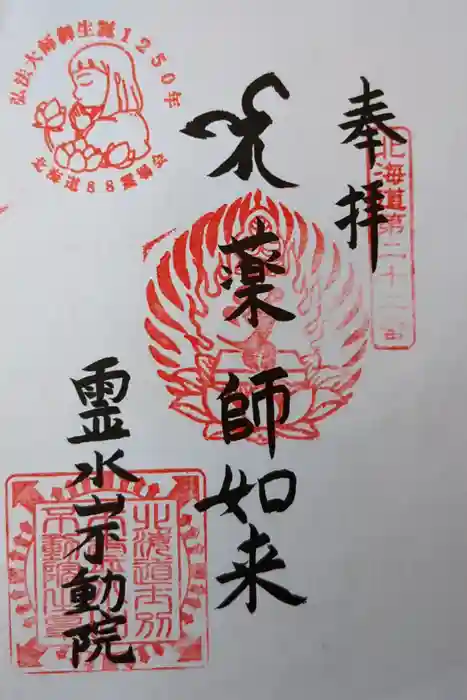 奉拝
北海道第二十二番
薬師如来
霊水山不動院
弘法大師御生誕1250年
北海道88霊場会
北海道士別
不動院之章